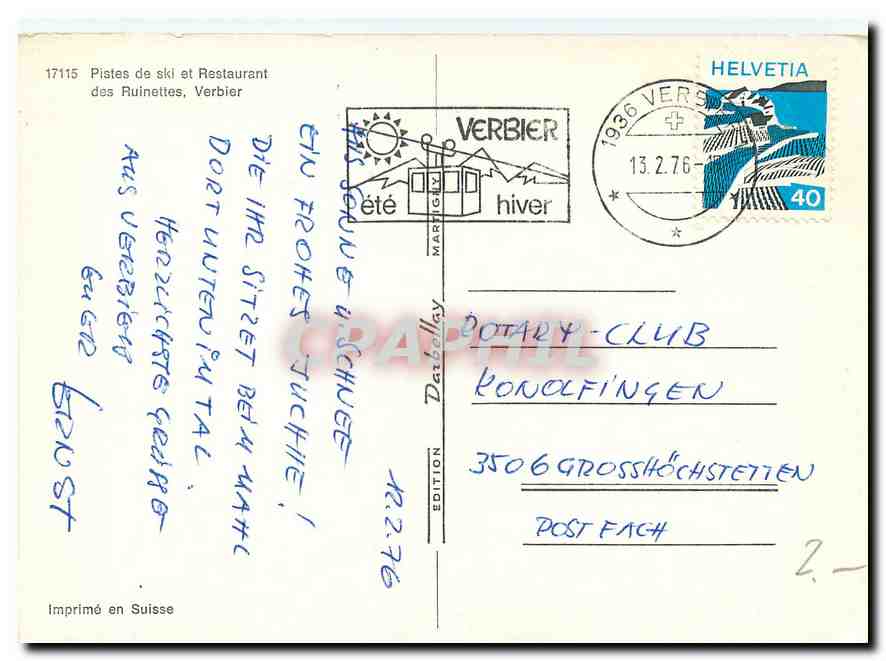 17115 Pistes de ski et Restaurant
des Ruinettes, Verbier
12.2.76
AUS SONNE U SCHNEE
EIN FROHES JUCHHE!
DIE IHR SITZET BEIM MAHL
DORT UNTEN IM TAL
HERZLICHSTE GRÜSSE
AUS VERBIER
EUER
ERNST
Imprimé en Suisse
EDITION Darbellay MARTIGNY
VERBIER
été hiver
13.2.76
HELVETIA
40
ROTARY-CLUB
KONOLFINGEN
3506 GROSSHÖCHSTETTEN
POSTFACH
2.–
CPAPHIL